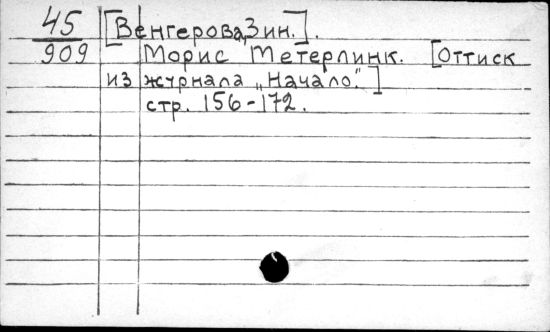 45 [Венгерова, Зин.].
909 Морис Метерлинк. [Оттиск
из журнала „Начало".]
стр. 156-172.